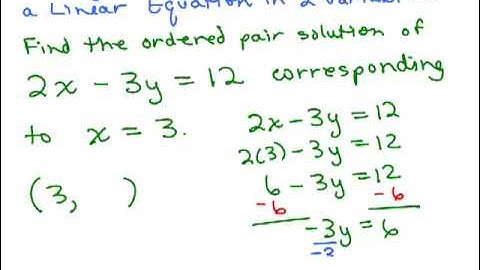 a Linear Equation in 2
Find the ordered pair solution of
2x - 3y = 12 corresponding
to x = 3.
2x - 3y = 12
2(3) - 3y = 12
6 - 3y = 12
-6 -6
-3y = 6
(3, )